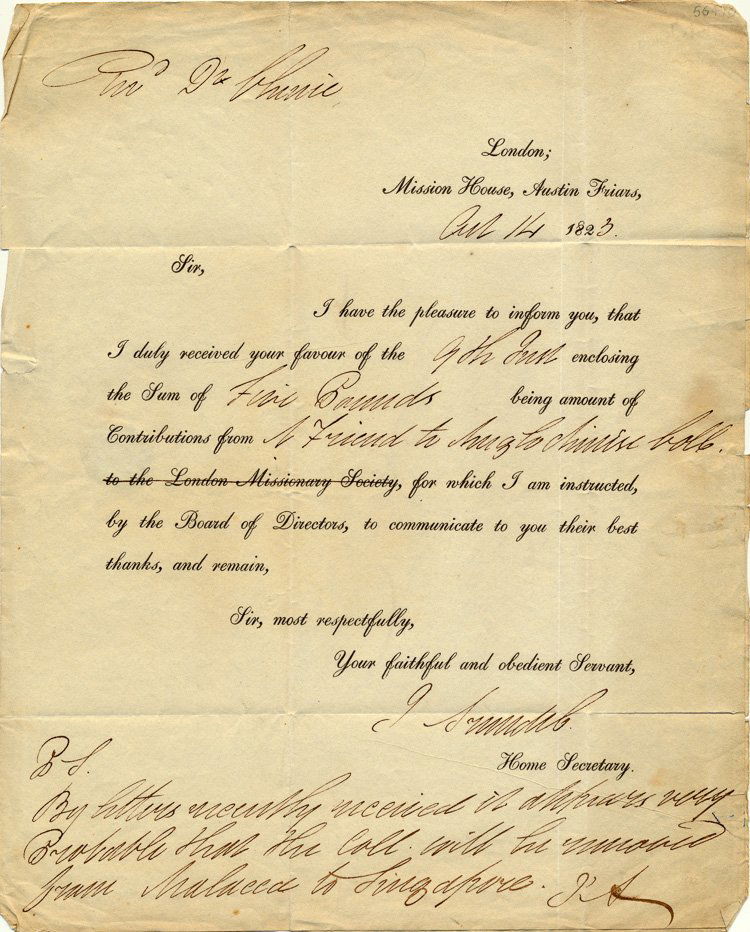 Revd Dr
London;
Mission House, Austin Friars,
Oct 14 1823.
Sir,
I have the pleasure to inform you, that
I duly received your favour of the 9th Inst enclosing
the Sum of Five Pounds being amount of
Contributions from A Friend to Anglo Chinese Coll.
to the London Missionary Society, for which I am instructed,
by the Board of Directors, to communicate to you their best
thanks, and remain,
Sir, most respectfully,
Your faithful and obedient Servant,
J
Home Secretary.
P S.
By letters recently received it appears very
Probable that the Coll. will be removed
from Malacca to Singapore. J A